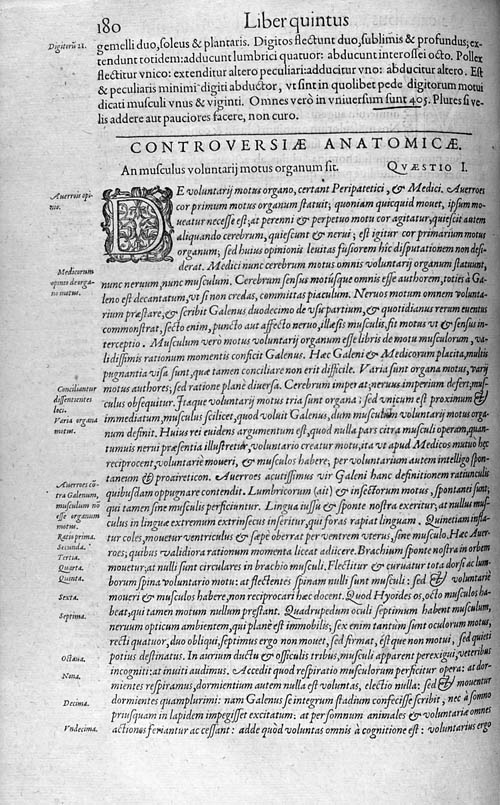 180
Liber quintus
Digitorũ 21.
gemelli duo, soleus & plantaris. Digitos flectunt duo, sublimis & profundus; ex-
tendunt totidem: adducunt lumbrici quatuor: abducunt interossei octo. Pollex
flectitur vnico: extenditur altero peculiari: adducitur vno: abducitur altero. Est
& peculiaris minimi digiti abductor, vt sint in quolibet pede digitorum motui
dicati musculi vnus & viginti. Omnes verò in vniuersum sunt 405. Plures si ve-
lis addere aut pauciores facere, non curo.
CONTROVERSIÆ ANATOMICÆ.
An musculus voluntarij motus organum sit. QVÆSTIO I.
Auerrois opi-
nio.
DE voluntarij motus organo, certant Peripatetici, & Medici. Auerroes
cor primum motus organum statuit; quoniam quicquid mouet, ipsum mo-
ueatur necesse est; at perenni & perpetuo motu cor agitatur, quiescit autem
aliquando cerebrum, quiescunt & nerui; est igitur cor primarium motus
organum; sed huius opinionis leuitas fusiorem hic disputationem non desi-
derat. Medici nunc cerebrum motus omnis voluntarij organum statuunt,
Medicorum
opinio de orga-
no motus.
nunc neruum, nunc musculum. Cerebrum sensus motusque omnis esse authorem, toties à Ga-
leno est decantatum, vt si non credas, committas piaculum. Neruos motum omnem volunta-
rium præstare, & scribit Galenus duodecimo de vsu partium, & quotidianus rerum euentus
commonstrat, secto enim, puncto aut affecto neruo, illæsis musculis, fit motus vt & sensus in-
terceptio. Musculum vero motus voluntarij organum esse libris de motu musculorum, va-
lidissimis rationum momentis conficit Galenus. Hæc Galeni & Medicorum placita, multis
pugnantia visa sunt, quæ tamen conciliare non erit difficile. Varia sunt organa motus, varij
Conciliantur
dissentientes
loci.
Varia organa
motus.
motus authores; sed ratione planè diuersa. Cerebrum imperat: neruus imperium defert; mus-
culus obsequitur. Itaque voluntarij motus tria sunt organa; sed vnicum est proximum &
immediatum, musculus scilicet, quod voluit Galenus, dum musculum voluntarij motus orga-
num definit. Huius rei euidens argumentum est, quod nulla pars citra musculi operam, quan-
tumuis nerui præsentia illustretur, voluntario creatur motu, ita vt apud Medicos mutuò hæc
reciprocent, voluntariè moueri, & musculos habere; per voluntarium autem intelligo spon-
taneum & proaireticon. Auerroes acutissimus vir Galeni hanc definitionem ratiunculis
Auerroes cõ-
tra Galenum,
musculum no
esse organum
motus.
Ratio prima.
Secunda.
Tertia.
Quarta.
Quinta.
Sexta.
Septima.
Octaua.
Nona.
Decima.
Vndecima.
quibusdam oppugnare contendit. Lumbricorum (ait) & insectorum motus, spontanei sunt;
qui tamen sine musculis perficiuntur. Lingua iussu & sponte nostra exeritur; at nullus mus-
culus in linguæ extremum extrinsecus inseritur, qui foras rapiat linguam. Quinetiam infla-
tur coles, mouetur ventriculus & sæpè oberrat per ventrem vterus, sine musculo. Hæc Auer-
roes; quibus validiora rationum momenta liceat adiicere. Brachium sponte nostra in orbem
mouetur; at nulli sunt circulares in brachio musculi. Flectitur & curuatur tota dorsi ac lum-
borum spina voluntario motu: at flectentes spinam nulli sunt musculi: sed & voluntariè
moueri & musculos habere, non reciprocari hæc docent. Quod Hyoides os, octo musculos ha-
beat, qui tamen motum nullum præstant. Quadrupedum oculi septimum habent musculum,
neruum opticum ambientem, qui planè est immobilis; sex enim tantùm sunt oculorum motus,
recti quatuor, duo obliqui, septimus ergo non mouet, sed firmat, estque non motui, sed quieti
potius destinatus. In aurium ductu & officulis tribus, musculi apparent perexigui, veteribus
incogniti: at inuiti audimus. Accedit quod respiratio musculorum perficitur opera: at dor-
mientes respiramus, dormientium autem nulla est voluntas, electio nulla: sed & mouentur
dormientes quamplurimi: nam Galenus se integrum stadium confecisse scribit, nec à somno
priusquam in lapidem impegisset excitatum: at per somnum animales & voluntariæ omnes
actiones feriantur ac cessant: adde quod voluntas omnis à cognitione est: voluntarius ergo